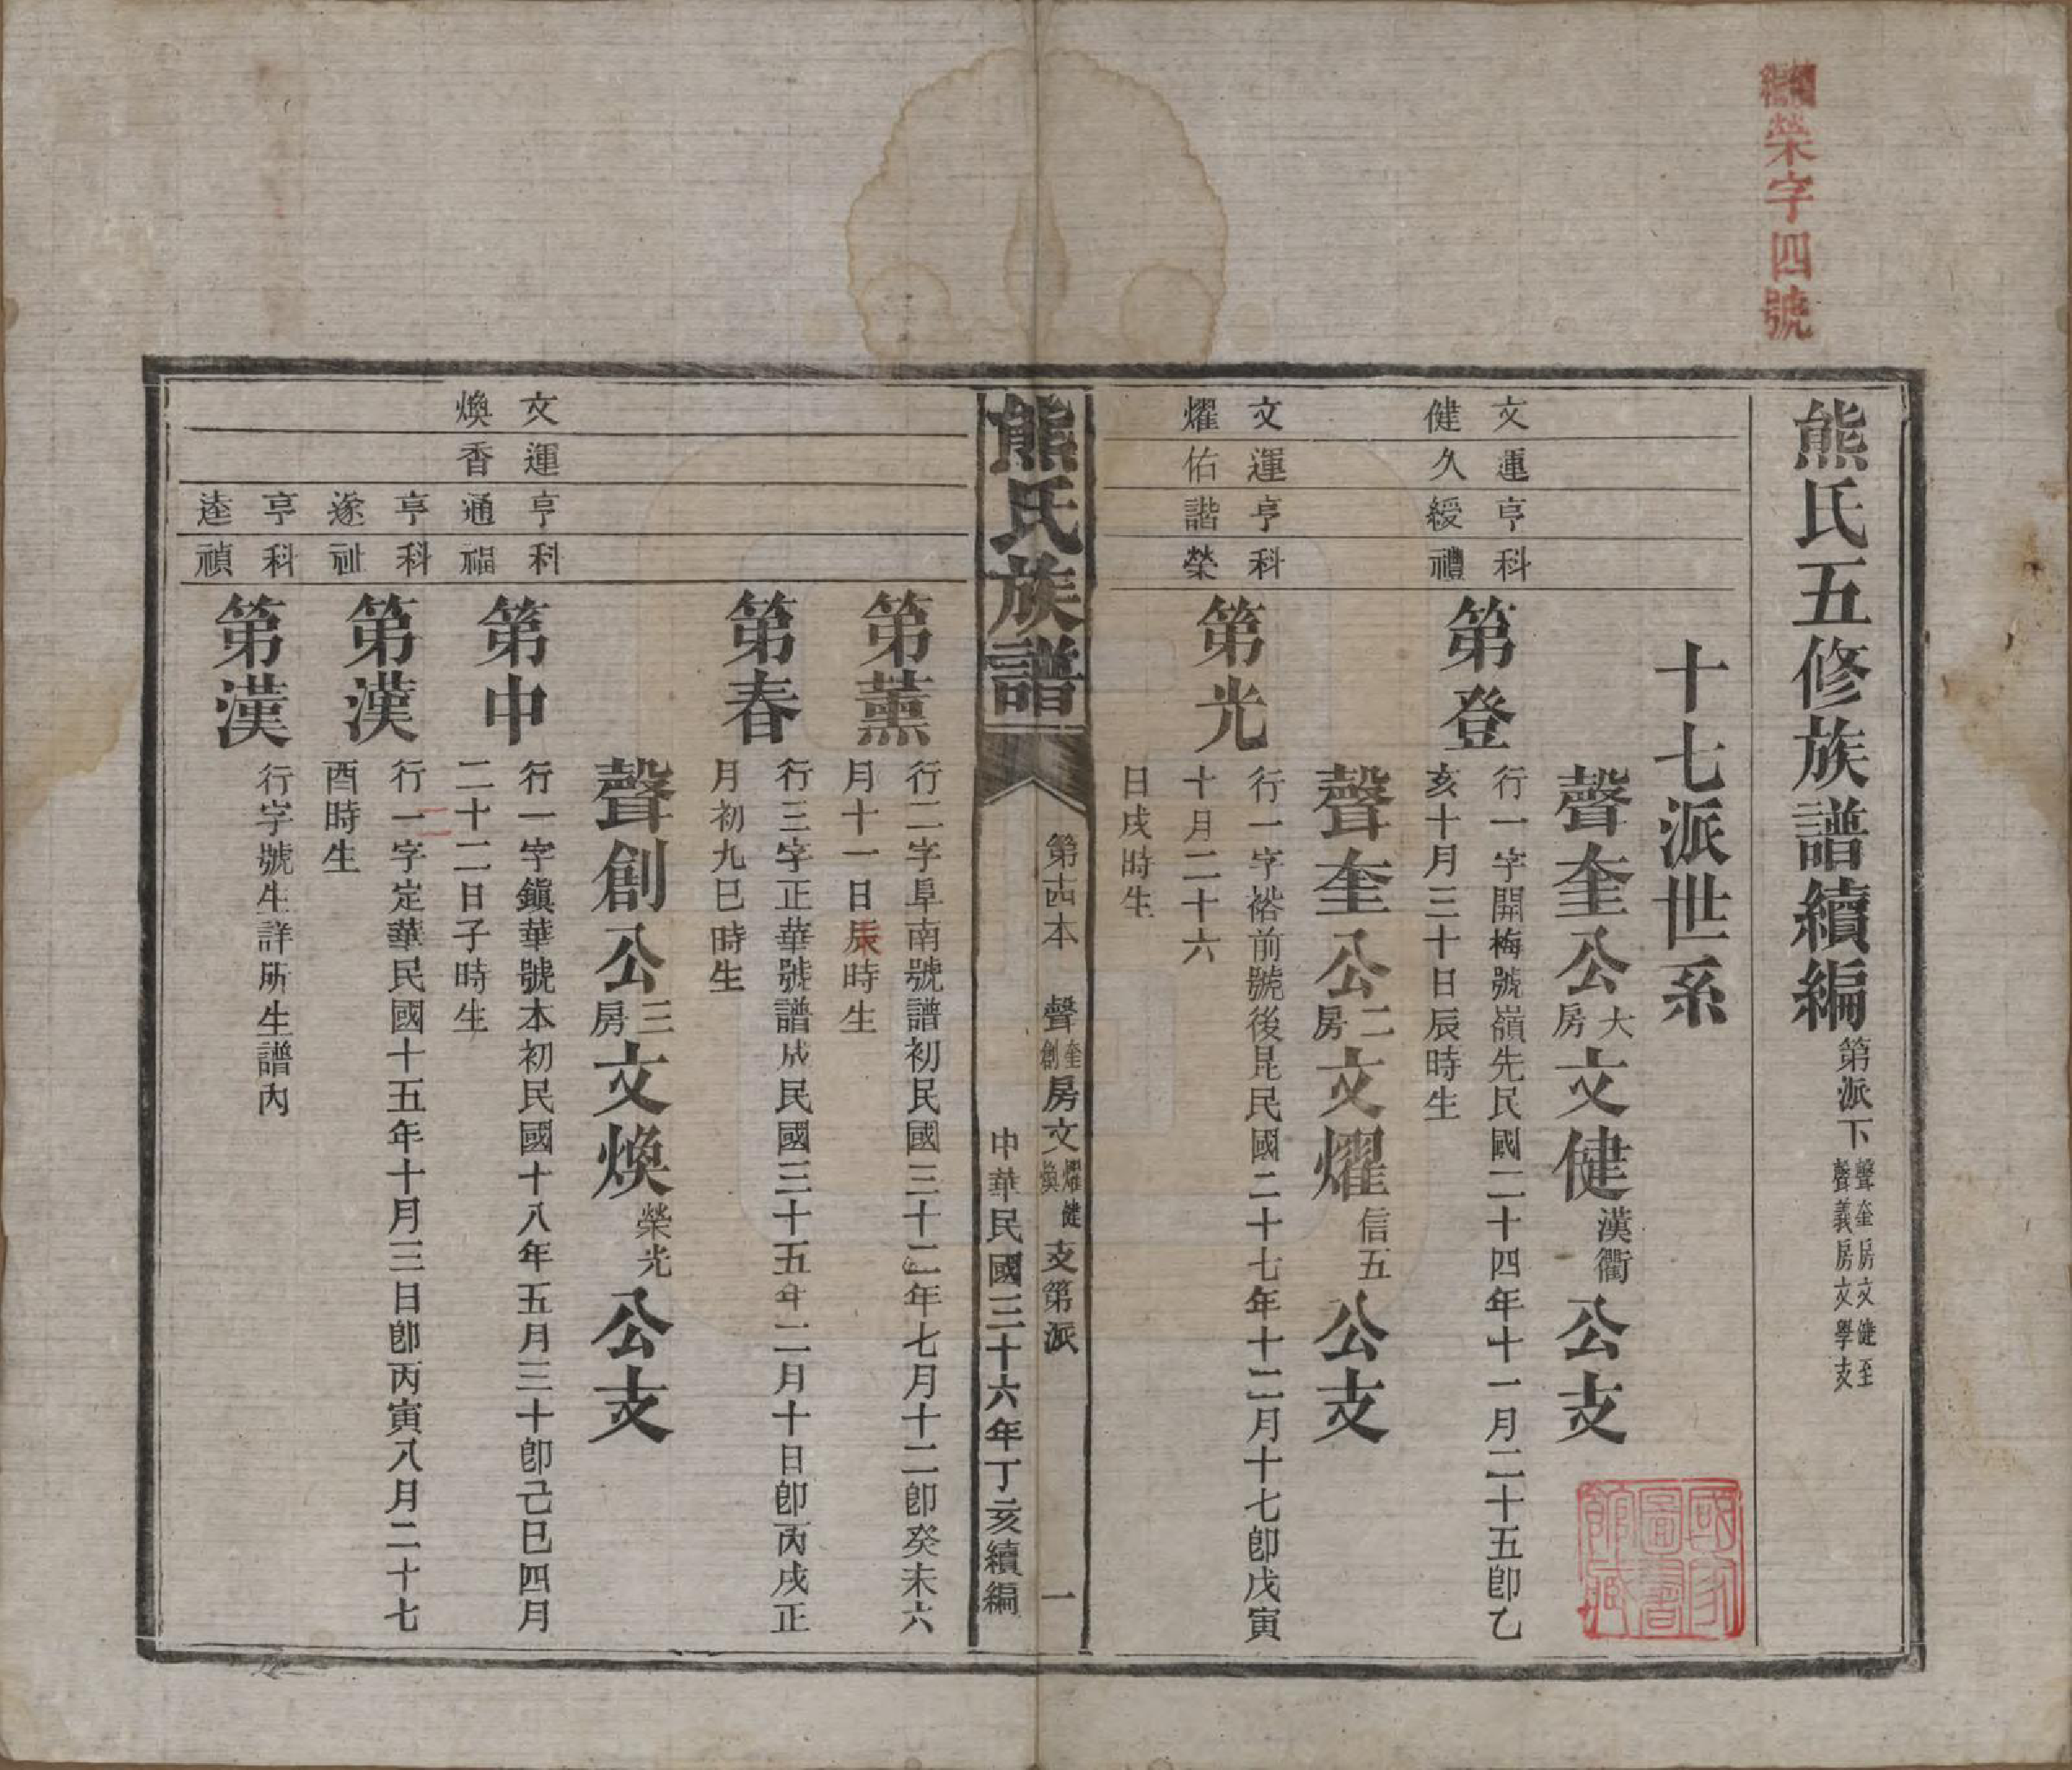 續編榮字四號
熊氏五修族譜續編
第派下
聲奎房文健至
聲義房文學支
國家圖書館藏
十七派世系
聲奎公大房文健漢衢公支
文運亨科
健久綬禮
第登
行一字開梅號嶺先民國二十四年十一月二十五卽乙
亥十月三十日辰時生
聲奎公二房文燿信五公支
文運亨科
燿佑諧榮
第光
行一字裕前號後昆民國二十七年十二月十七卽戊寅
十月二十六
日戌時生
熊氏族譜
第十四本
聲奎創房文燿煥健支第派
一
中華民國三十六年丁亥續編
第薰
行二字阜南號譜初民國三十二年七月十二卽癸未六
月十一日辰時生
第春
行三字正華號譜成民國三十五年二月十日卽丙戌正
月初九巳時生
聲創公三房文煥榮光公支
文運亨科
煥香通福
第中
行一字鎭華號本初民國十八年五月三十卽己巳四月
二十二日子時生
亨科
遂祉
第漢
行一字定華民國十五年十月三日卽丙寅八月二十七
酉時生
亨科
逵禎
第漢
行字號生詳所生譜內